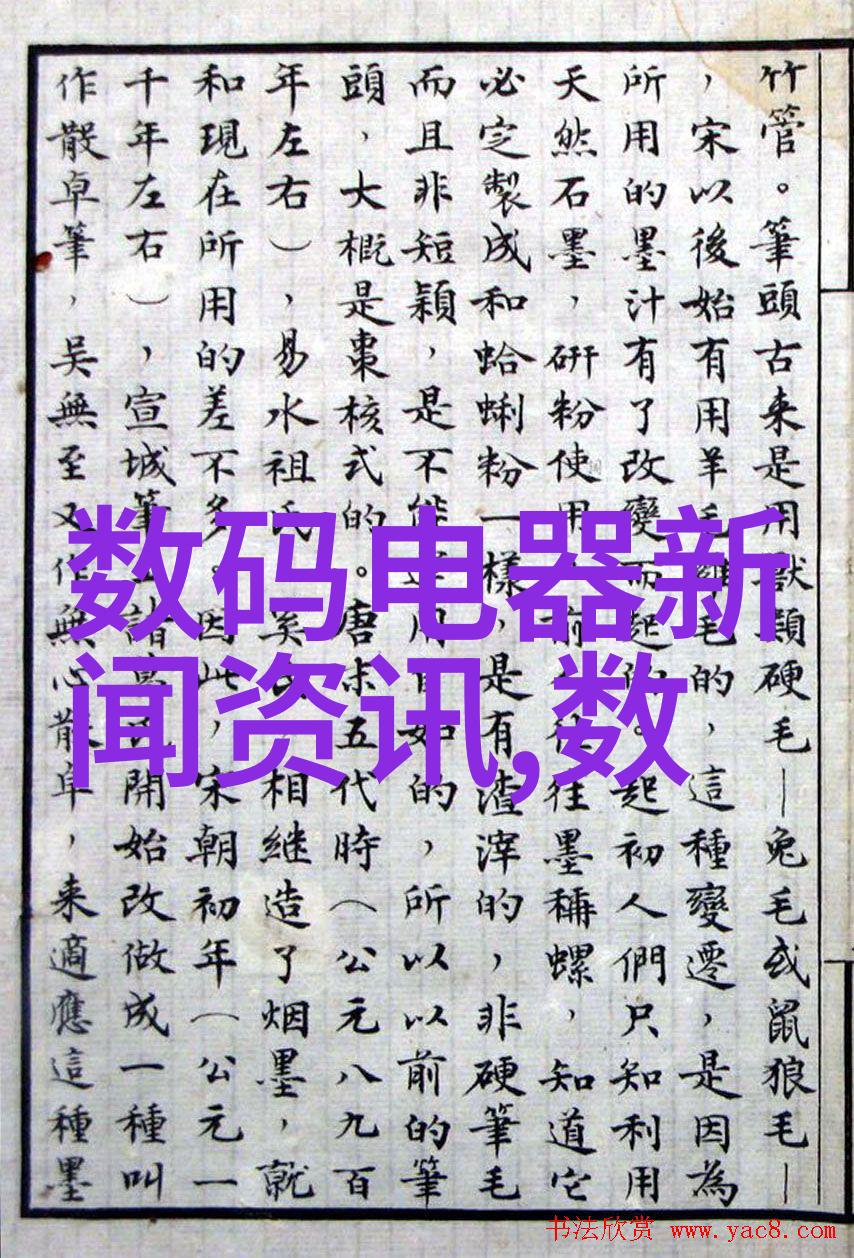 竹管。筆頭古来是用獸類硬毛—兔毛或鼠狼毛—
，宋以後始有用羊毛雞毛的，這種變遷，是因為
所用的墨汁有了改變而起的。起初人們只知利用
天然石墨，研粉使用，前人往往墨稱螺，知道它
必定製成和蛤蜊粉一樣，是有渣滓的，非硬筆毛
而且非短穎，是不能 用 如的，所以以前的筆
頭，大概是棗核式的。唐末五代時（公元八九百
年左右），易水祖氏 奚氏 相継造了烟墨，就
和現在所用的差不多。因此，宋朝初年（公元一
千年左右），宣城筆 諸葛氏開始改做成一種叫
作散卓筆，吳無至又作無心散卓，来適應這種墨
数码电器新
闻资讯,数
书法欣赏 www.yac8.com